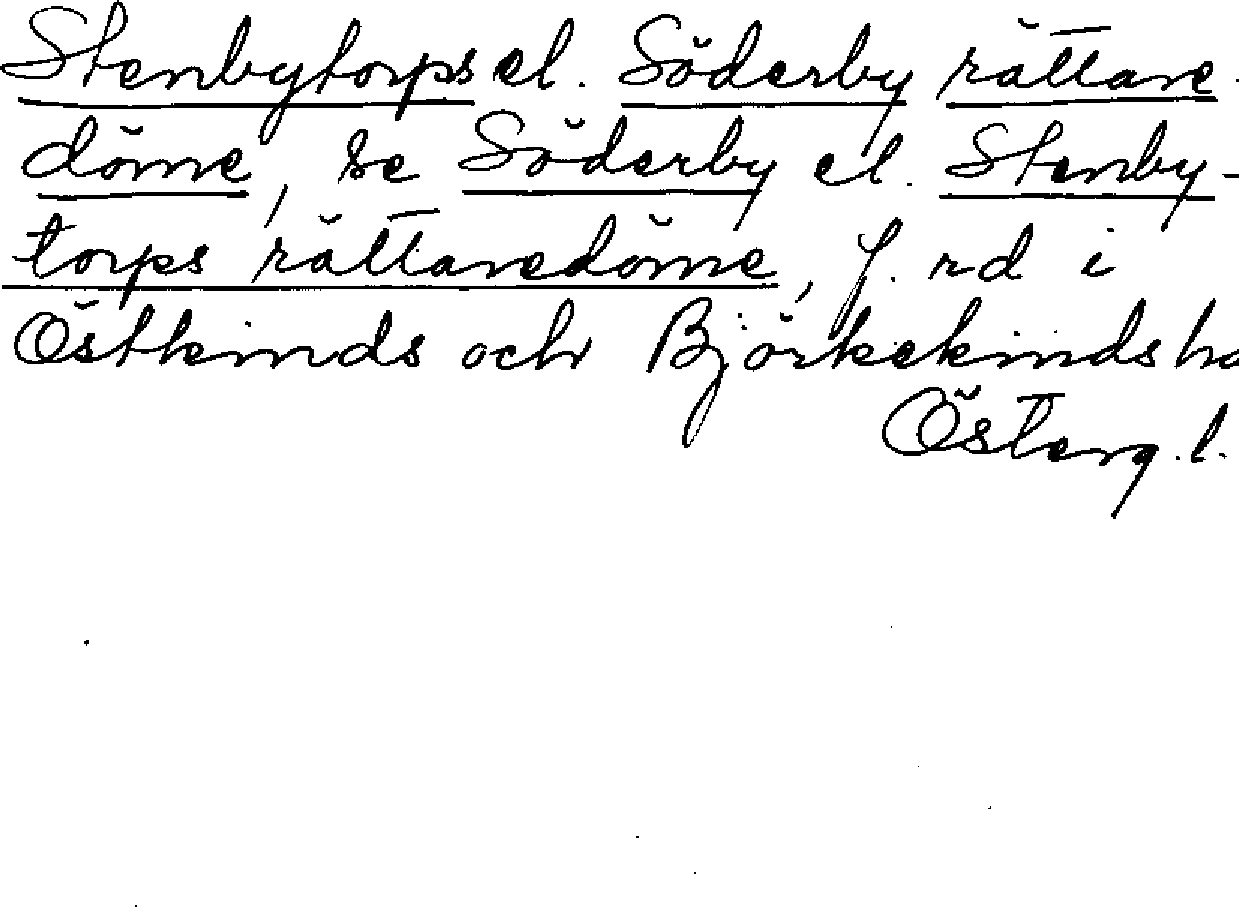 Stenbytorps el. Söderby rättare-
döme, se Söderby el. Stenby-
torps rättaredöme, f. rd i
Östkinds och Björkekinds hd
Österg. l.